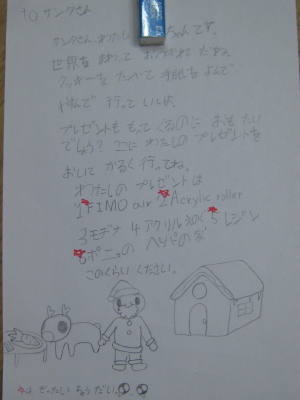 to サンタさん
サンタさん、わたし ちゃんです。
世界を まわって おつかれさまだね。
クッキーを たべて 手紙を よんで
やすんで 行って いいよ。
プレゼントも もって くるのに おもたい
でしょう? ここに わたしの プレゼントを
おいて かるく 行ってね。
わたしの プレゼントは
1 FIMO air 2 Acrylic roller
3 モデナ 4 アクリルえのぐ 5 レジン
6 ポニョの
このくらい ください。
は ぜったい ちょうだい。